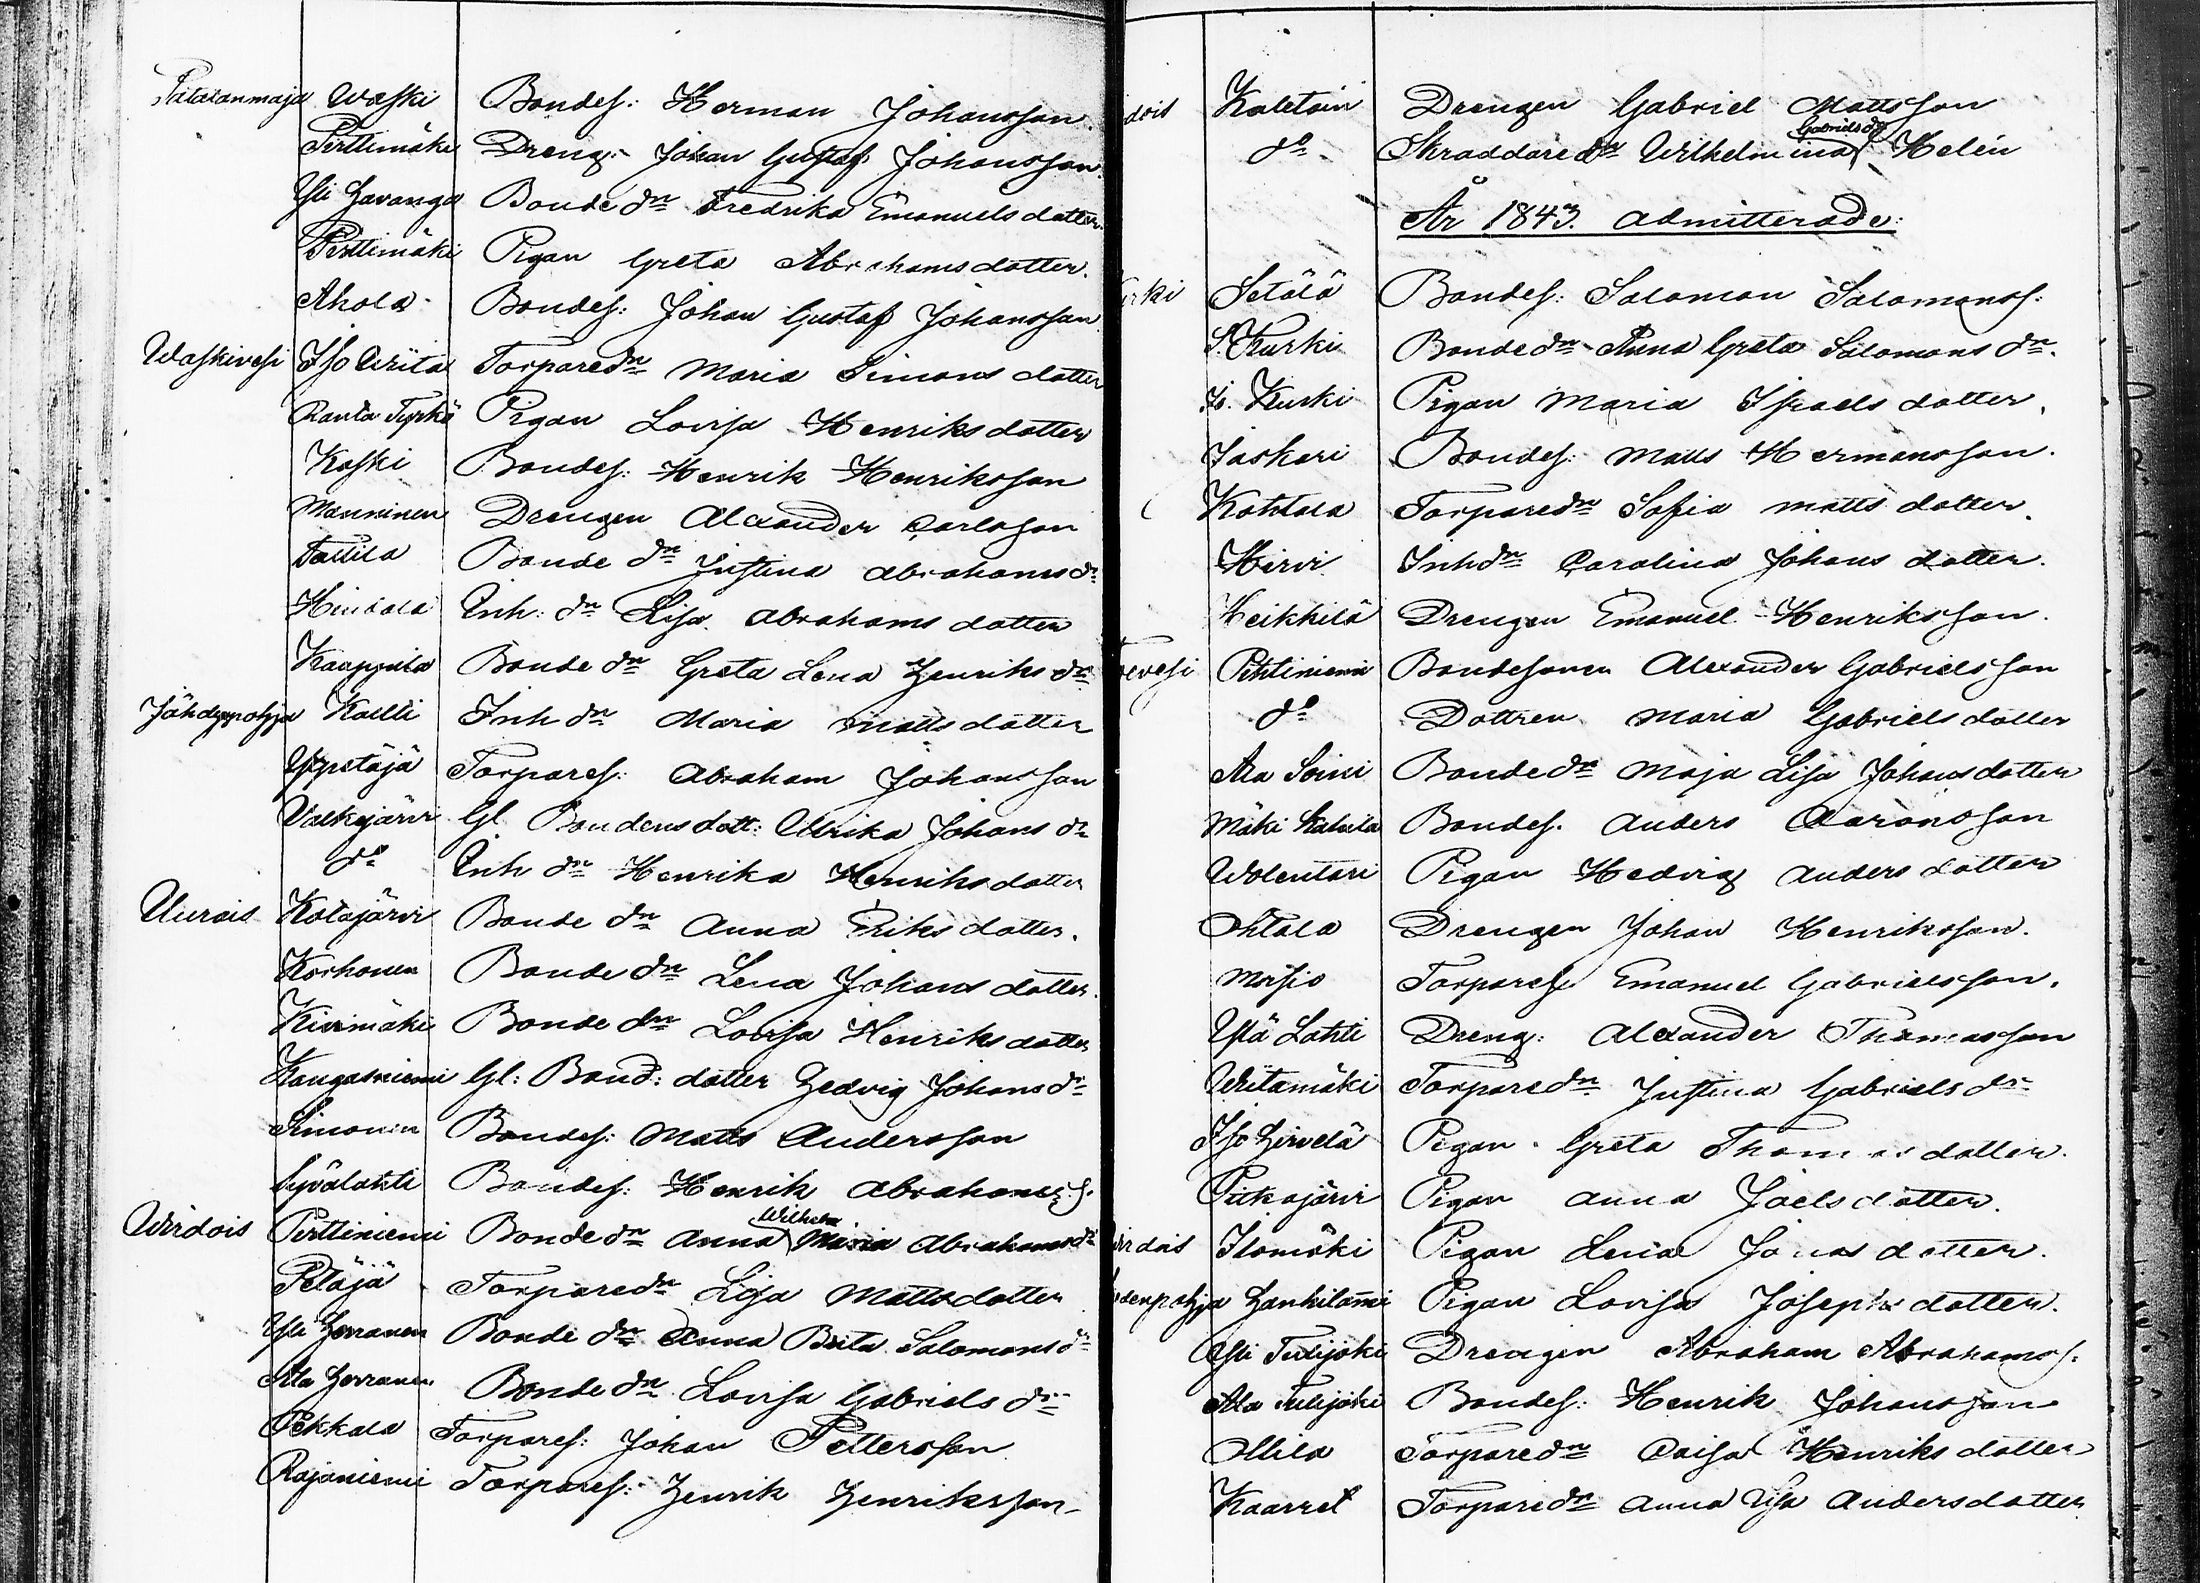 Patalanmaja Waski Bondes: Herman Johansson.
Perttimäki Dreng: Johan Gustaf Johansson.
Yli Havanga Bonde dr Fredrika Emanuels dotter.
Perttimäki Pigan Greta Abrahams dotter.
Ahola Bondes: Johan Gustaf Johansson
Waskivesi Iso Wiita Torpare dr Maria Simons dotter
Ranta Tyrkö Pigan Lovisa Henriks dotter
Koski Bondes: Henrik Henriksson
Manninen Drengen Alexander Carlsson
Tallila Bonde dr Justina Abrahams dr
Inh: dr Lisa Abrahams dotter
Kauppila Bonde dr Greta Lena Henriks dr
Jähdyspohja Kaelli Inh dr Maria Matts dotter
Petäjä Torpares: Abraham Johansson
Valkejärvi Gl. Bondens dott: Ulrika Johans dr
do Inh dr Henrika Henriks dotter
Uurais Kotajärvi Bonde dr Anna Eriks dotter.
Korhonen Bonde dr Lena Johans dotter.
Kivimäki Bonde dr Lovisa Henriks dotter
Kangasniemi Gl: Bond: dotter Hedvig Johans dr
Simonen Bondes: Matts Andersson
Syvälahti Bondes: Henrik Abrahams s.
Wirdois Perttiniemi Bonde dr Anna Wilhelm. Maria Abrahams dr
Petäjä Torpare dr Lisa Matts dotter
Yli Herranen Bonde dr Anna Brita Salomons dr
Ala Herranen Bonde dr Lovisa Gabriels dr
Pekkala Torpares: Johan Pettersson
Rajaniemi Torpares: Henrik Henriksson
dois Kaletoin Drengen Gabriel Mattsson
do Skraddare dr Wilhelmina Gabriels dr Helén
År 1843. admitterade:
rki Setälä Bondes: Salomon Salomons s.
S. Kurki Bonde dr Anna Greta Salomons dr.
Is. Kurki Pigan Maria Israels dotter.
Jaskari Bondes: Matts Hermansson.
Kohtala Torpare dr Sofia Matts dotter.
Hirvi Inh dr Carolina Johans dotter.
Heikkilä Drengen Emanuel Henriksson.
vesi Pihtiniemi Bondesonen Alexander Gabrielsson
do Dottren Maria Gabriels dotter
Ala Soini Bonde dr Maja Lisa Johans dotter
Mäki Bondes. Anders Aaronsson
Wolentari Pigan Hedvig Anders dotter
Ohtala Drengen Johan Henriksson.
Moisio Torpares Emanuel Gabrielsson.
Ylä Lahti Dreng: Alexander Thomasson
Wiitamäki Torpare dr Justina Gabriels dr
Iso Hirvelä Pigan Greta Thomas dotter.
Pitkäjärvi Pigan Anna Joels dotter.
irdois Ilomäki Pigan Lena Jonas dotter.
denpohja Hankilanni Pigan Lovisa Josephs dotter.
Yli Tulijoki Drengen Abraham Abrahams s.
Ala Tulijoki Bondes: Henrik Johansson
Ollila Torpare dr Caisa Henriks dotter
Kaarret Torpare dr Anna Ulla Anders dotter